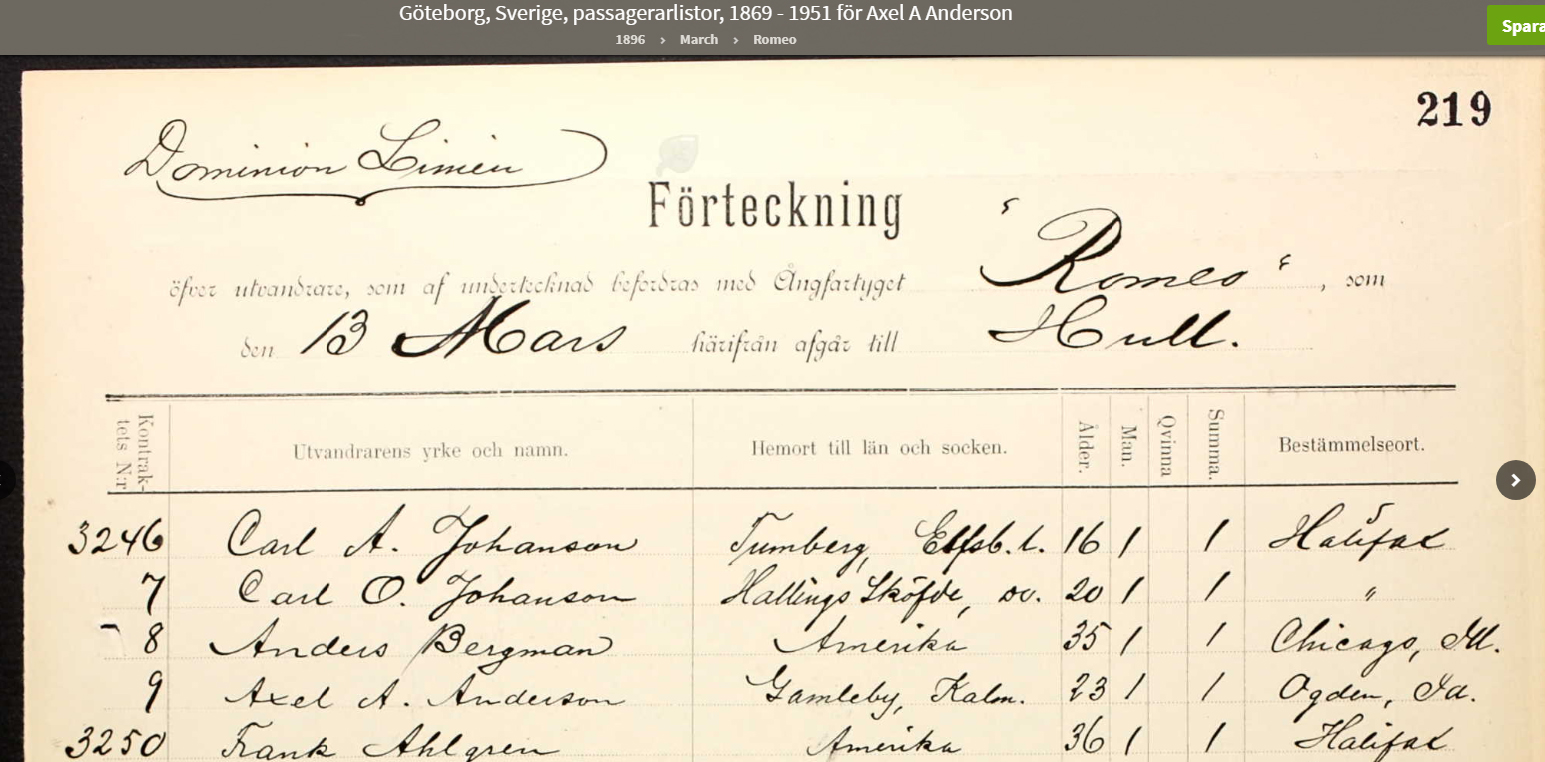 Göteborg, Sverige, passagerarlistor, 1869 - 1951 för Axel A Anderson
1896 › March › Romeo
Spara
219
Dominion Linien
Förteckning
öfver utvandrare, som af undertecknad befordras med Ångfartyget "Romeo", som
den 13 Mars härifrån afgår till Hull.
Kontraktets N:r Utvandrarens yrke och namn. Hemort till län och socken. Ålder. Man. Qvinna Summa. Bestämmelseort.
3246 Carl A. Johanson Tumberg, Elfsb. l. 16 1 1 Halifax
7 Carl O. Johanson Hallings Sköfde, so. 20 1 1 "
8 Anders Bergman Amerika 35 1 1 Chicago, Ill.
9 Axel A. Anderson Gamleby, Kalm. 23 1 1 Ogden, Ia.
3250 Frank Ahlgren Amerika 36 1 1 Halifax